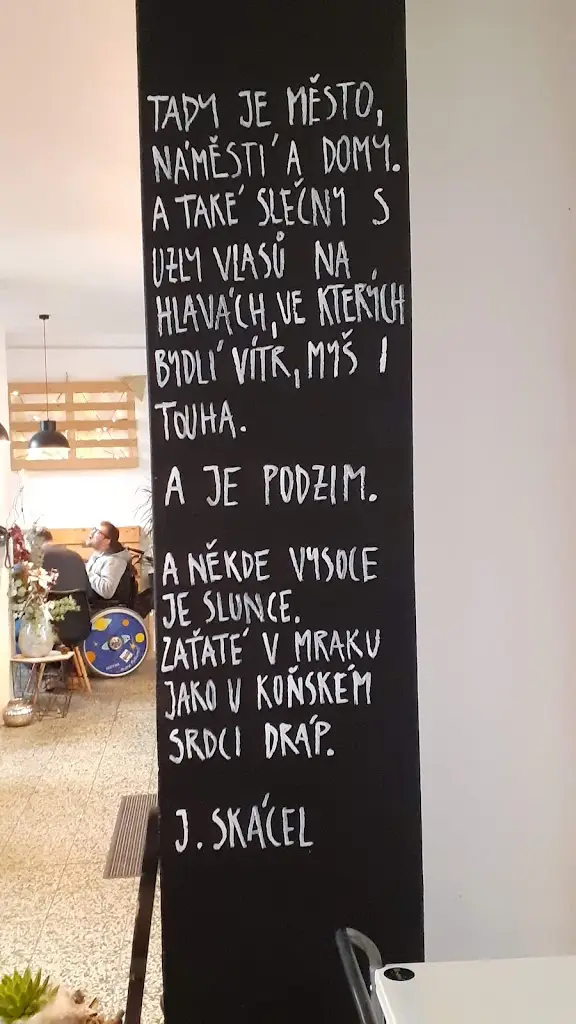 TADY JE MĚSTO,
NÁMĚSTÍ A DOMY.
A TAKÉ SLEČNY S
UZLY VLASŮ NA
HLAVÁCH, VE KTERÝCH
BYDLÍ VÍTR, MYŠ I
TOUHA.
A JE PODZIM.
A NĚKDE VYSOCE
JE SLUNCE.
ZAŤATÉ V MRAKU
JAKO V KOŇSKÉM
SRDCI DRÁP.
J. SKÁCEL